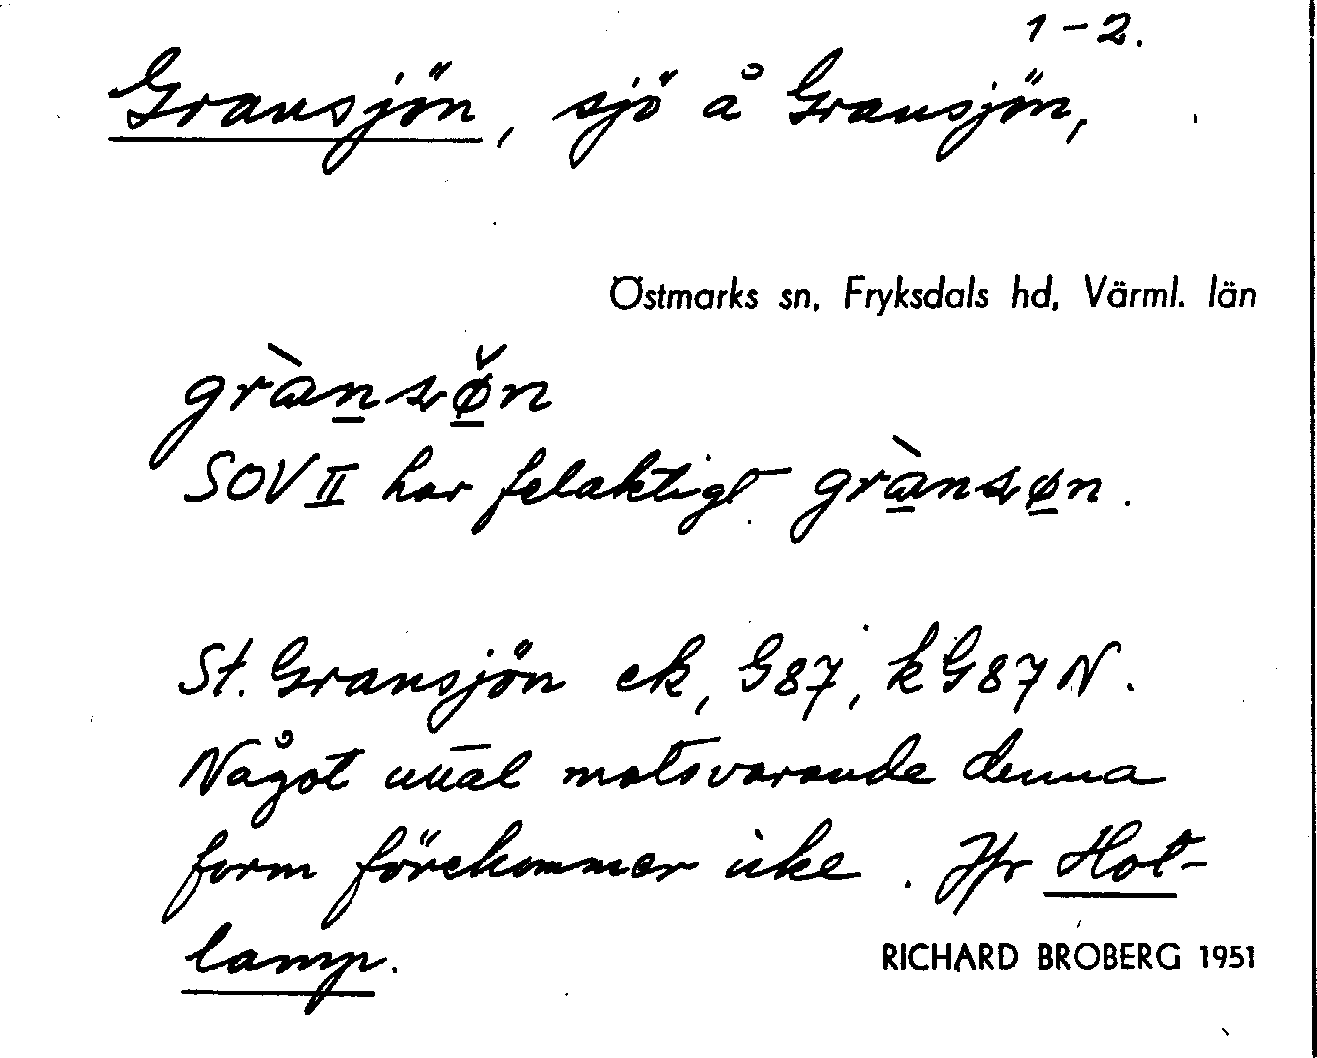 1-2.
Gransjön, sjö å Gransjön,
Östmarks sn, Fryksdals hd, Värml. län
grànsø̌n
SOV II har felaktigt grànsøn.
St. Gransjön ek, G87, kG87N.
Något uttal motsvarande denna
form förekommer icke. Jfr Hol-
lamp.
RICHARD BROBERG 1951